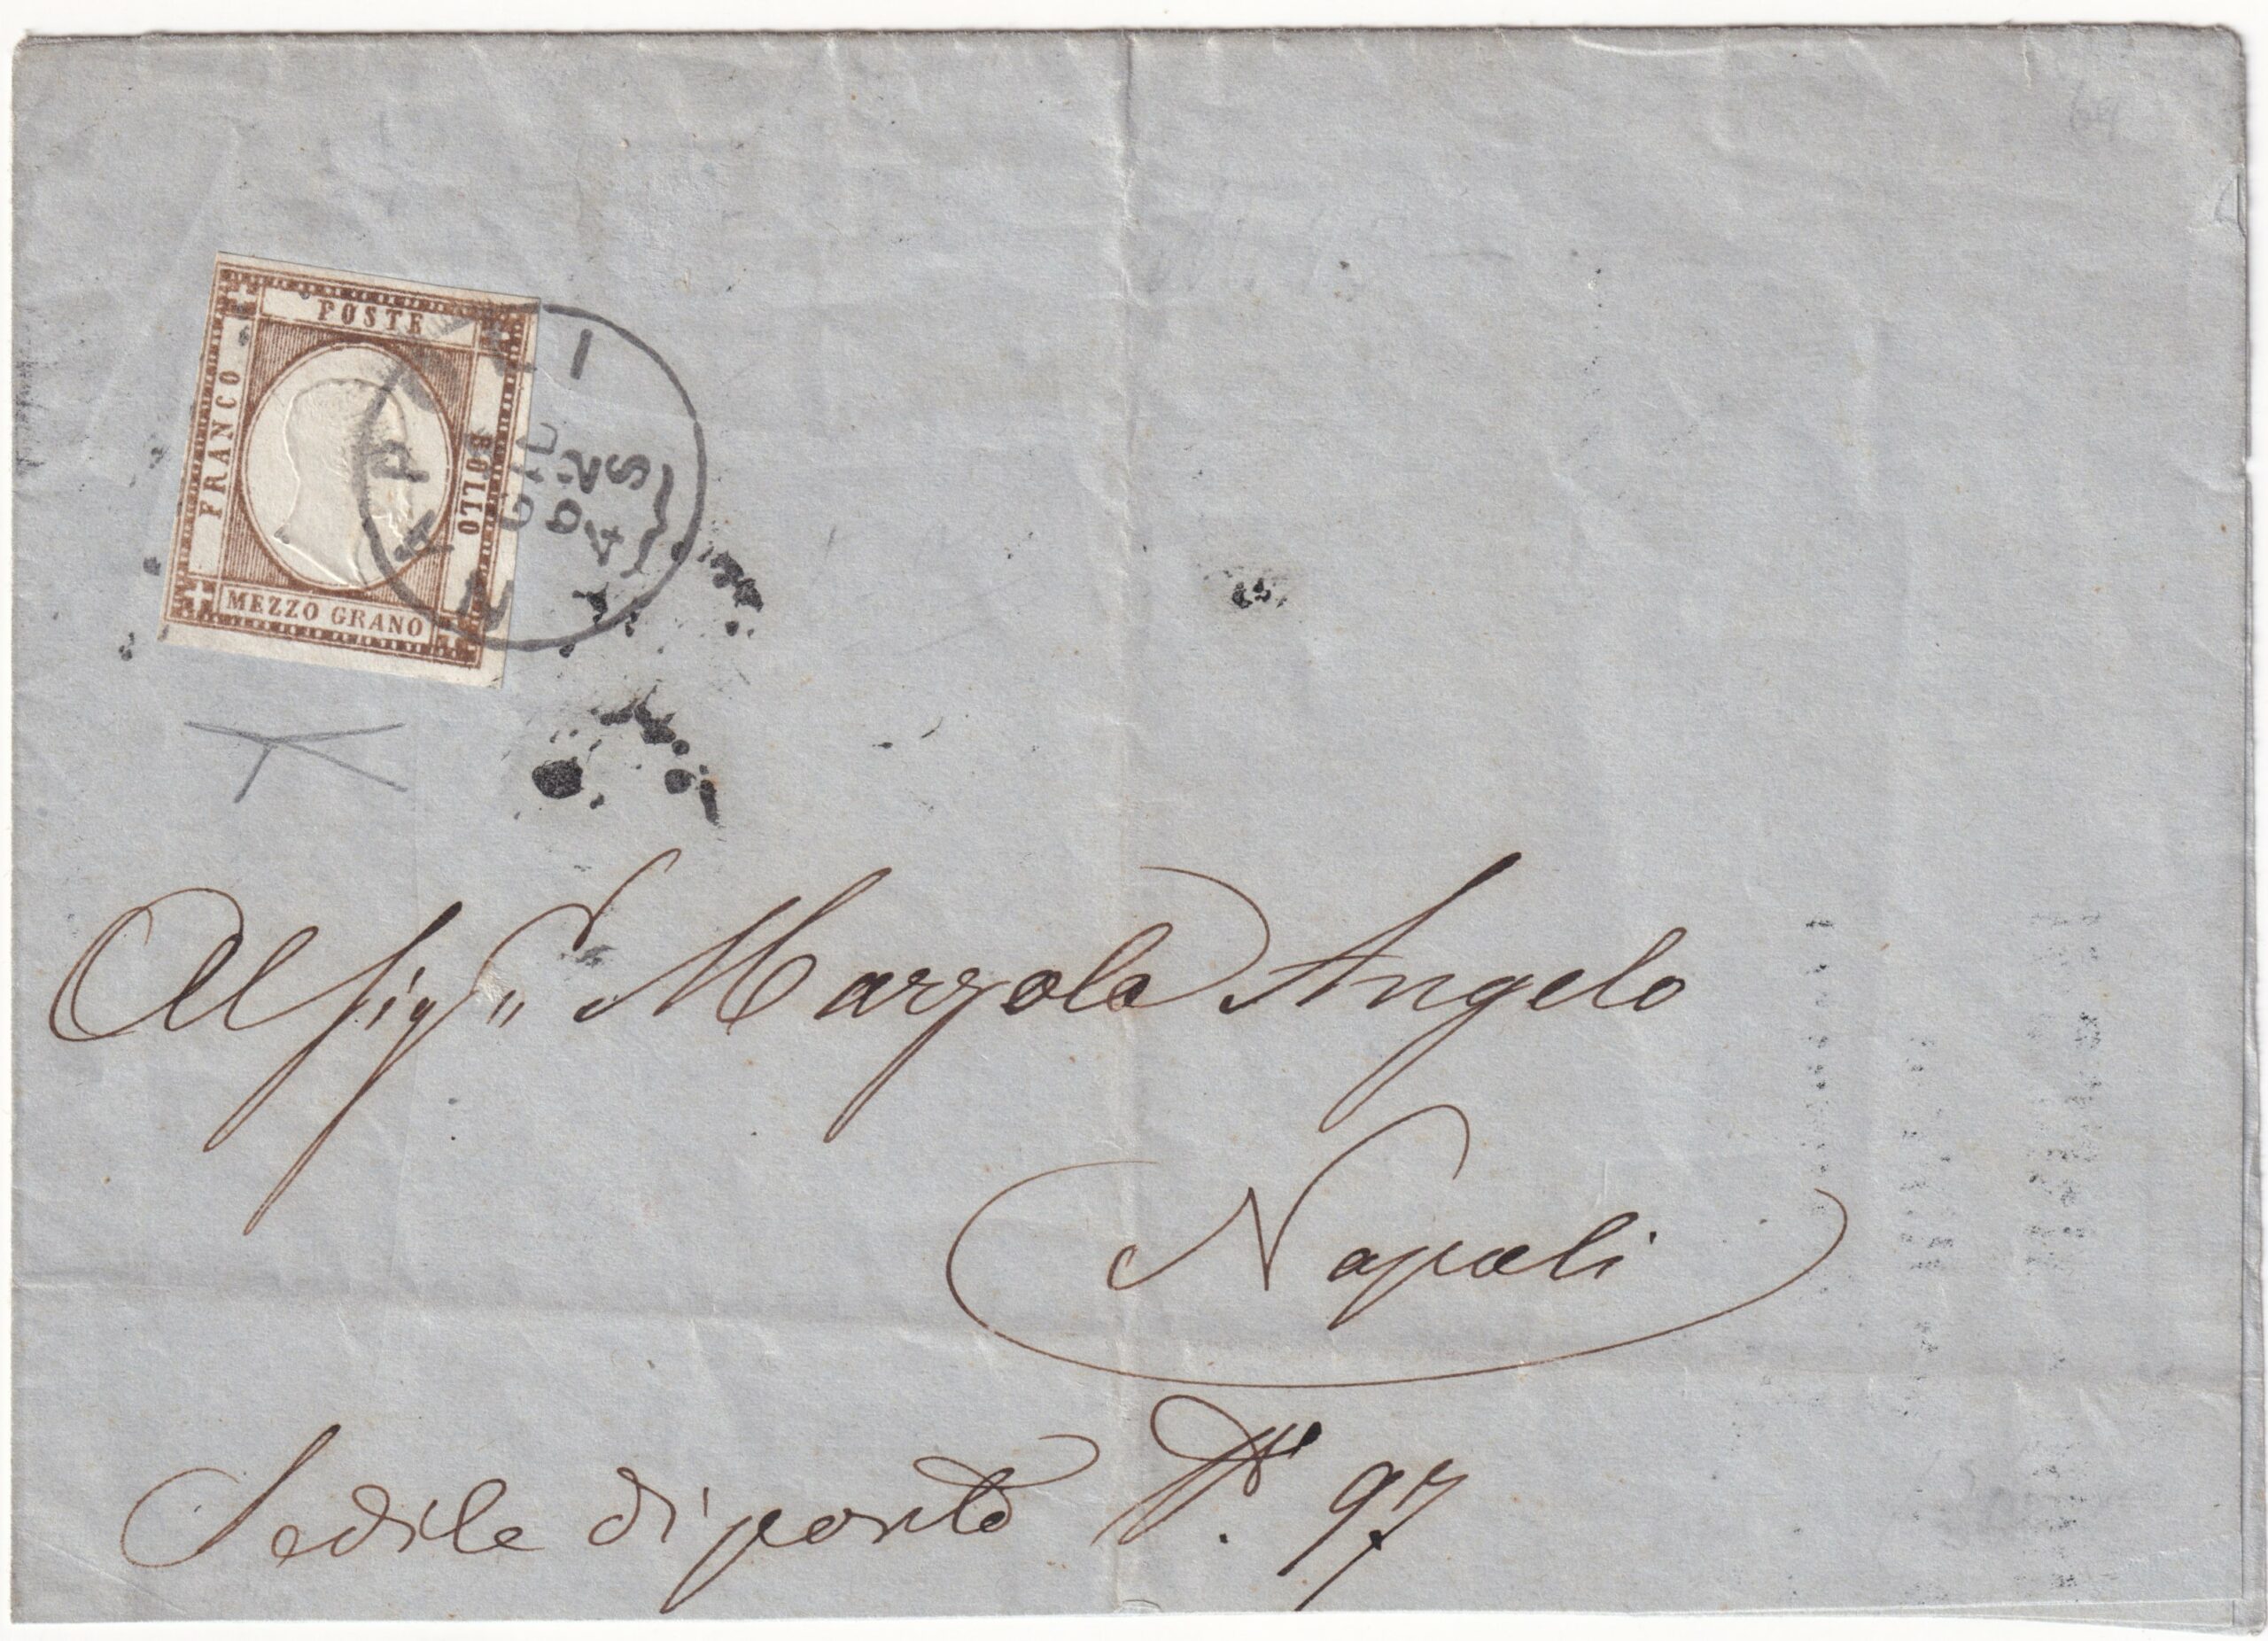 POSTE
FRANCO
BOLLO
MEZZO GRANO
NAPOLI
Al Sigr" Marzola Angelo
Napoli
Sedile di porto No. 97